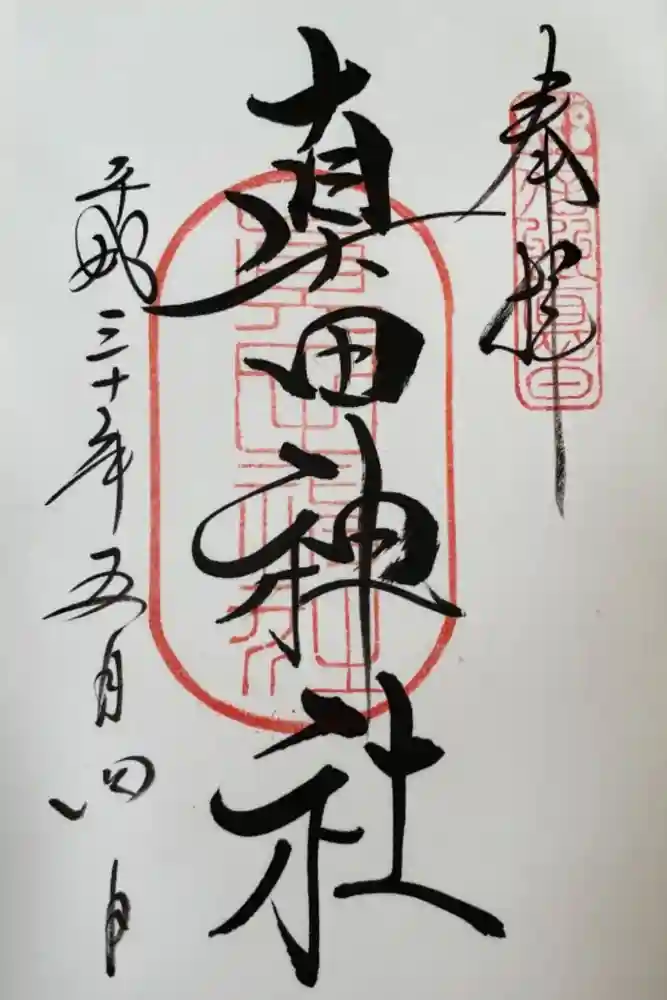 奉拝
眞田神社
平成三十年五月四日